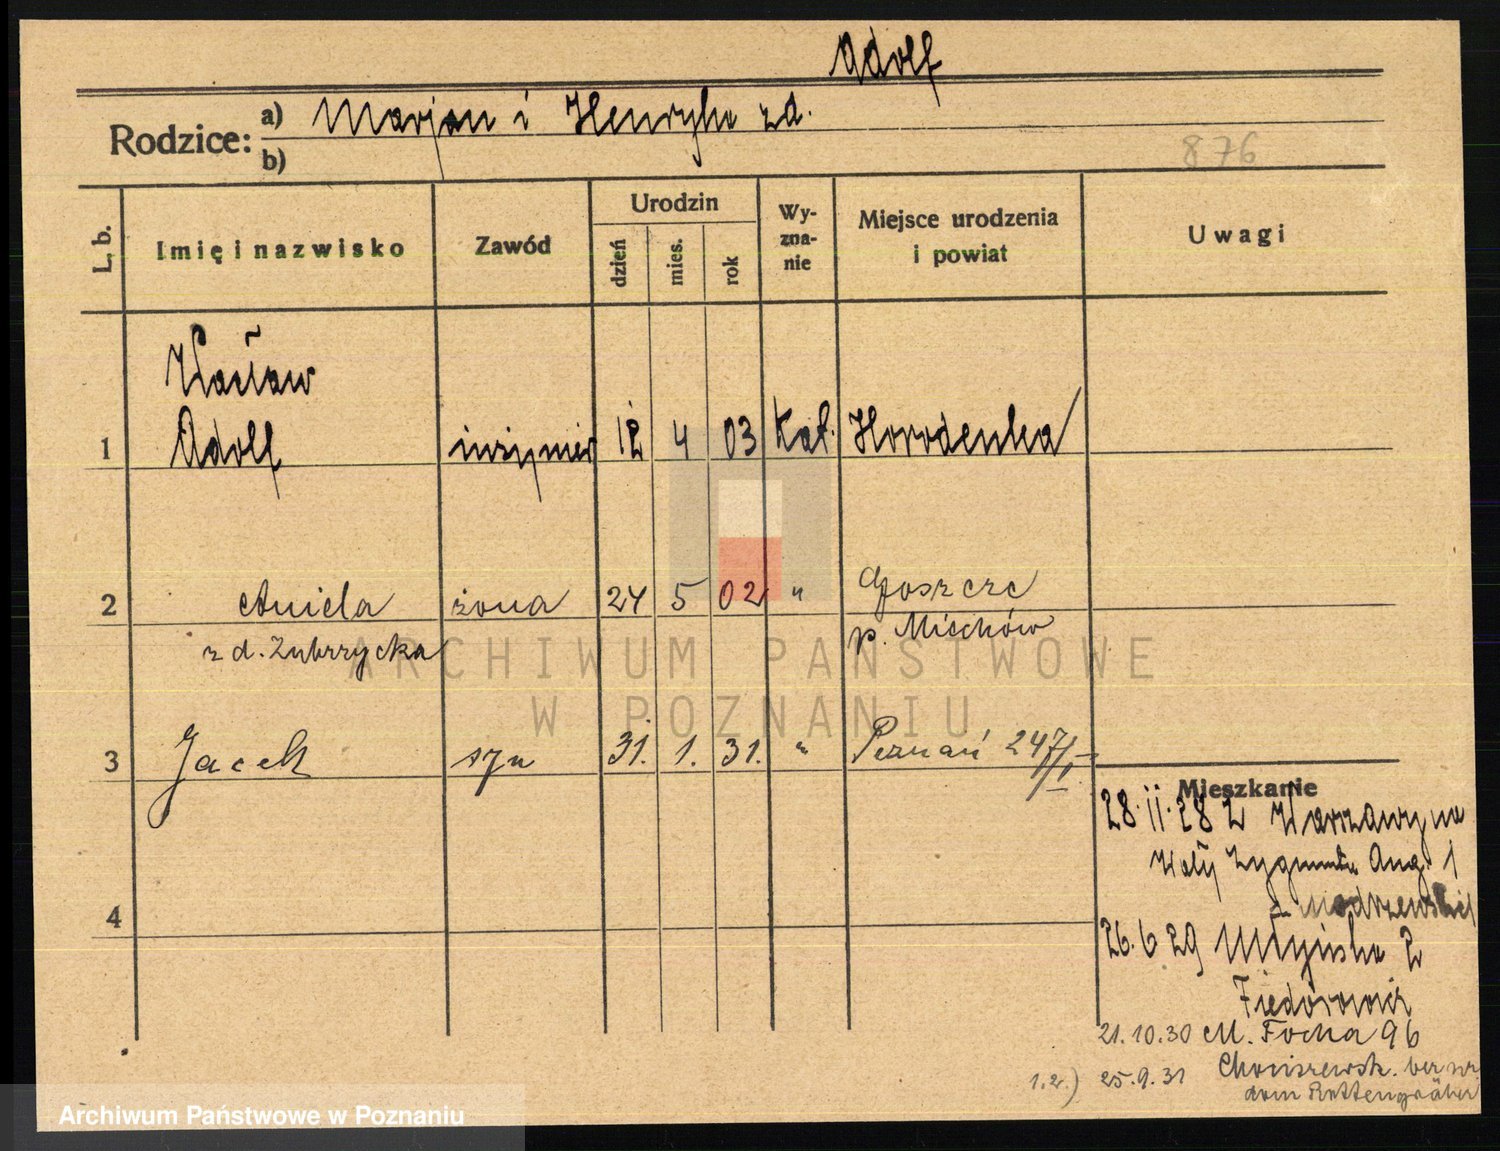 Adolf
Rodzice: a) Marjan i Henryka z d.
b)
876
L. b. Imię i nazwisko Zawód Urodzin dzień mies. rok Wy-zna-nie Miejsce urodzenia i powiat Uwagi
Wacław
1 Adolf inżynier 12 4 03 Kat. Horodenka
2 Aniela żona 24 5 02 " Goszcze
z d. Zubrzycka p. Miechów
ARCHIWUM PAŃSTWOWE
W POZNANIU
3 Jacek syn 31. 1. 31. " Poznań 247/I
Mieszkanie
28.11.28 z Warszawy na
Wały Zygmunta Aug. 1
z Modrzewskiej
4
26.6 29 Młyńska 2
Fiedorowicz
21.10.30 M. Focha 96
1.2.) 25.9.31 Chociszewsk.
dom Rottengräber
Archiwum Państwowe w Poznaniu